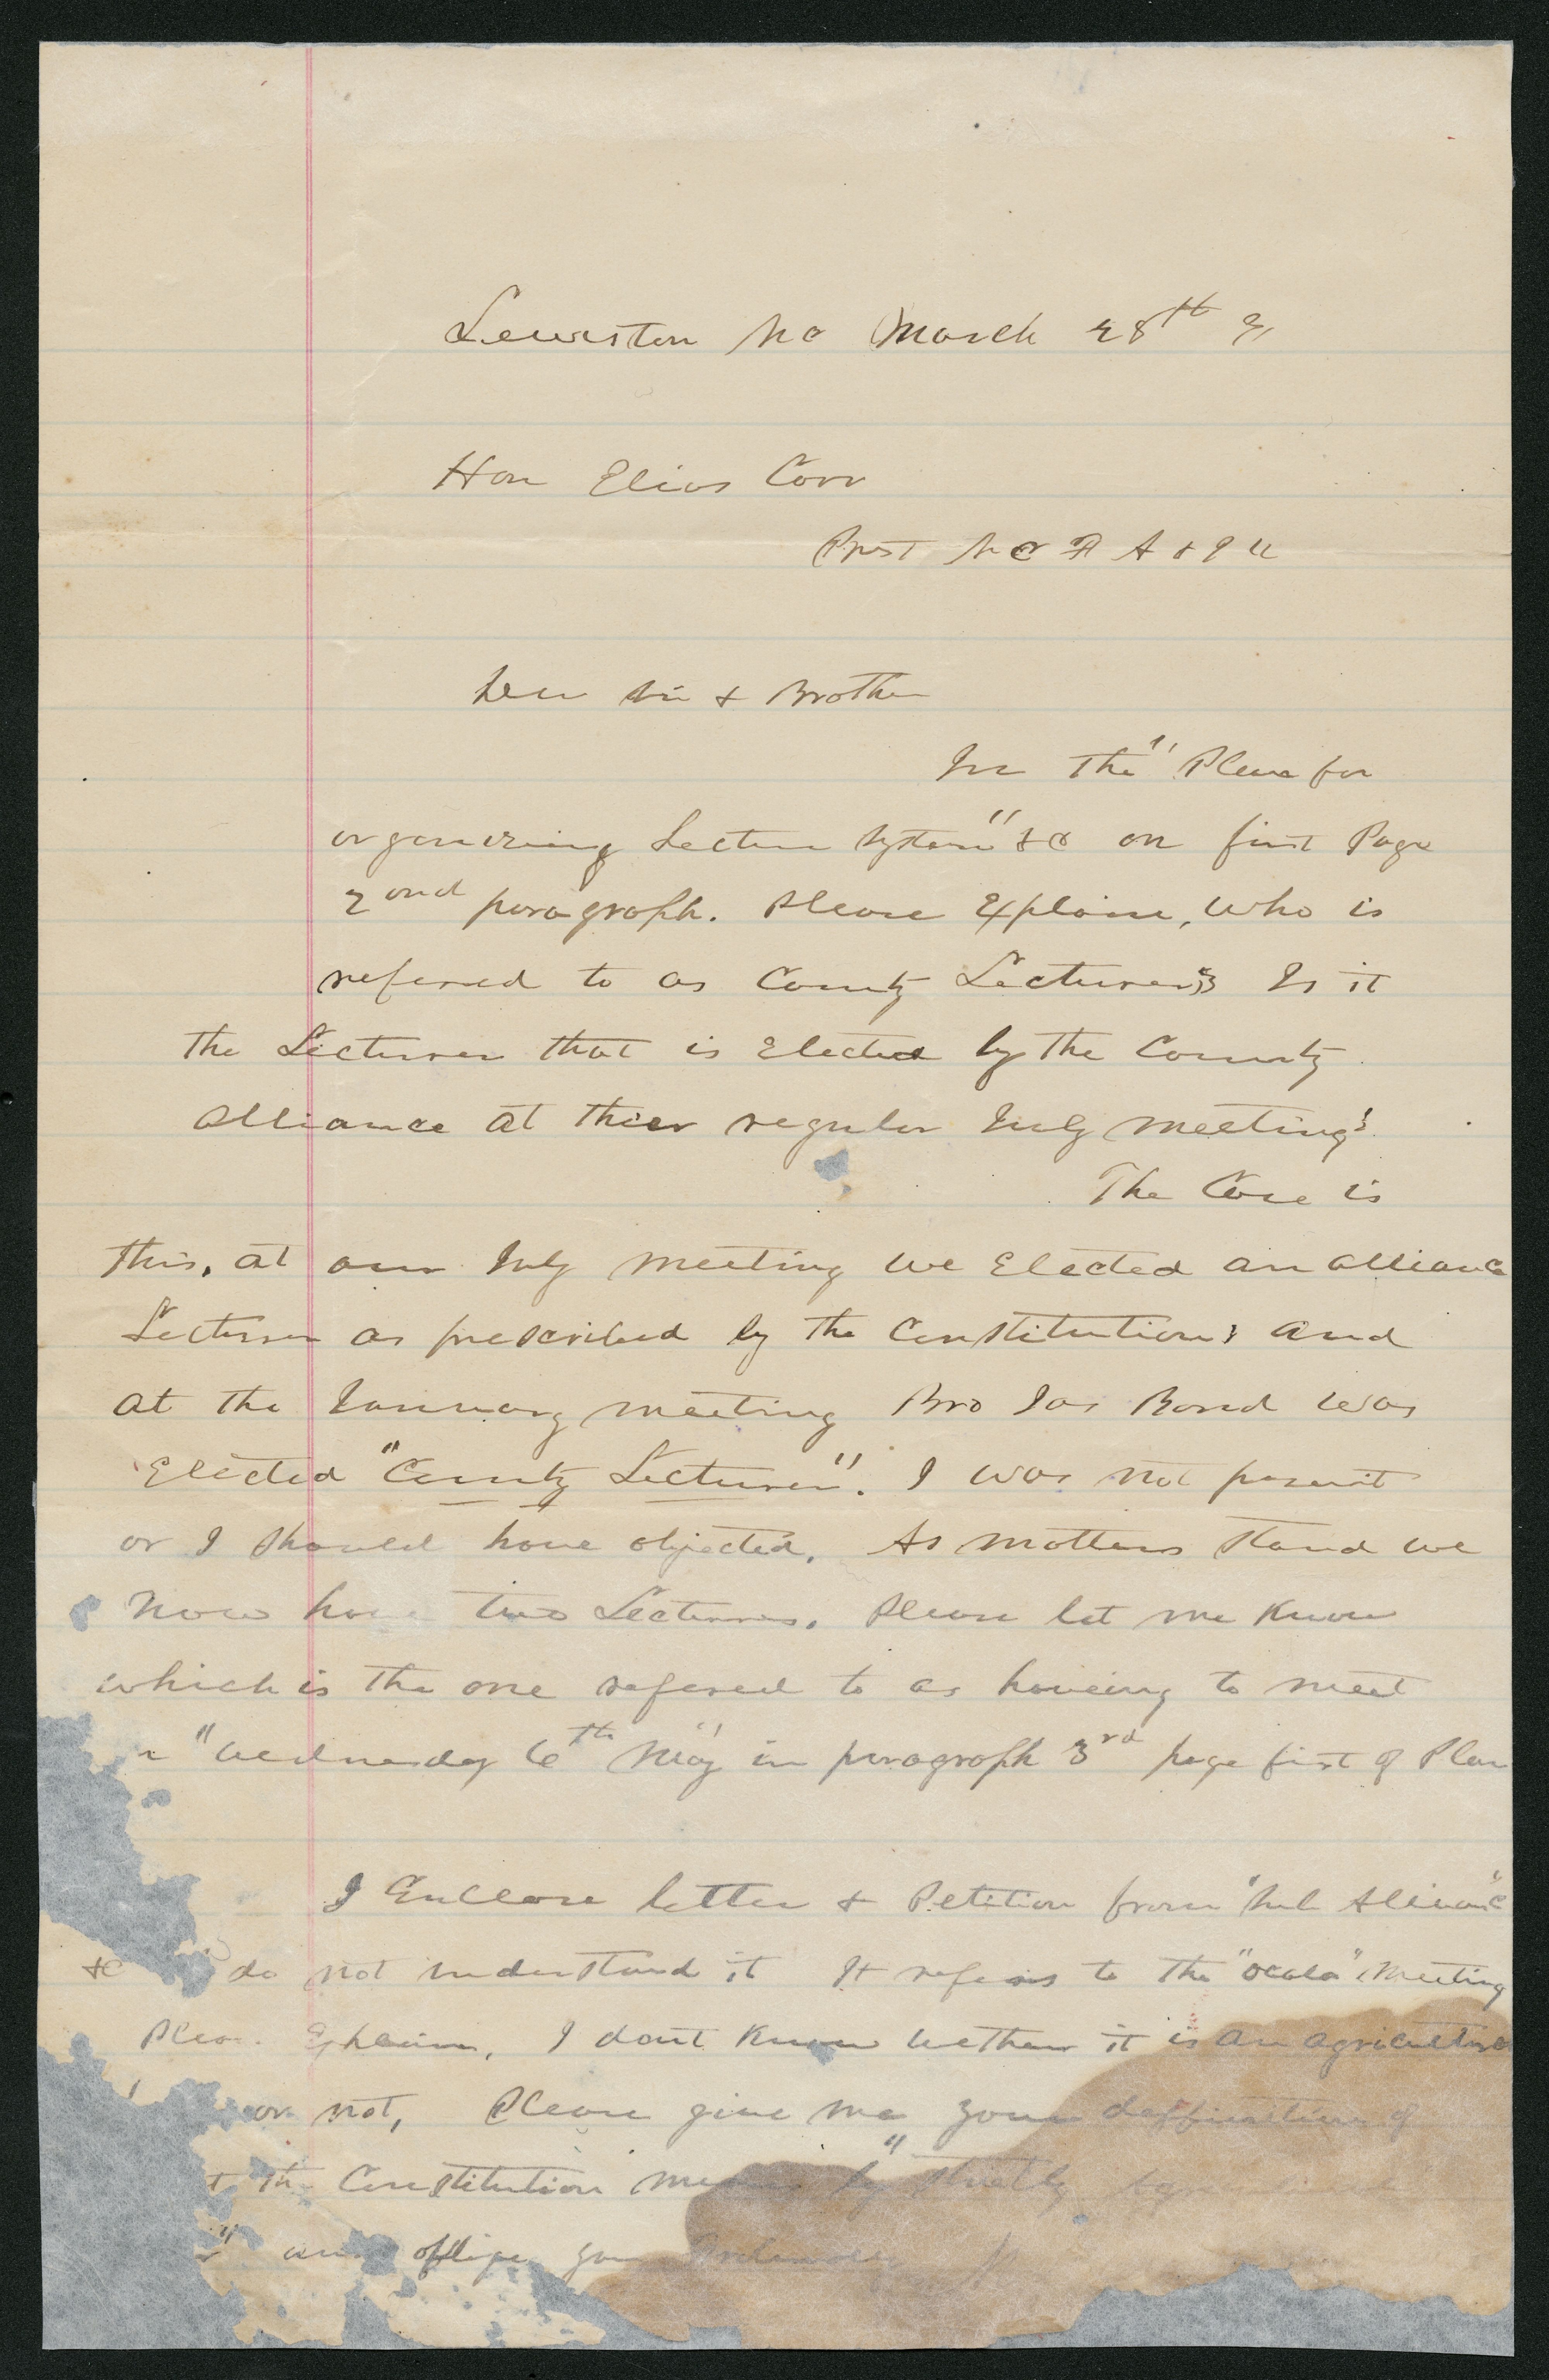 Lewiston NC March 28th 91
Hon Elias Carr
Prest N C F A & I U
Dear Sir & Brother
In the "Plan for
organizing Lecture System" &c on first Page
2ond paragraph. Please Explain, who is
referred to as County Lecturer? Is it
the Lecturer that is Elected by the County
Alliance at thier regular July meeting?
The Case is
this, at our July meeting we Elected an alliance
Lecturer as prescribed by the Constitution; and
at the January meeting Bro Jas Bond was
Elected "County Lecturer". I was not present
or I should have objected. As matters stand we
now have two Lecturers. Please let me Know
which is the one refered to as haveing to meet
"Wednesday 6th May" in paragraph 3rd page first of Plan
I Enclose letter & Petition from Sub Alliance
&c do not understand it It refers to the "Ocala" Meeting
Pleas Explain, I dont Know wether it is an agriculture
or not, Please give me your deffinition of
the Constitution means by "Strictly
oblige your